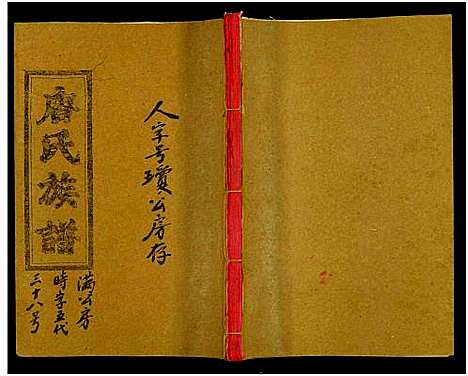 人字号瓊公房存
唐氏族譜
满公房
時字五代
三十八号